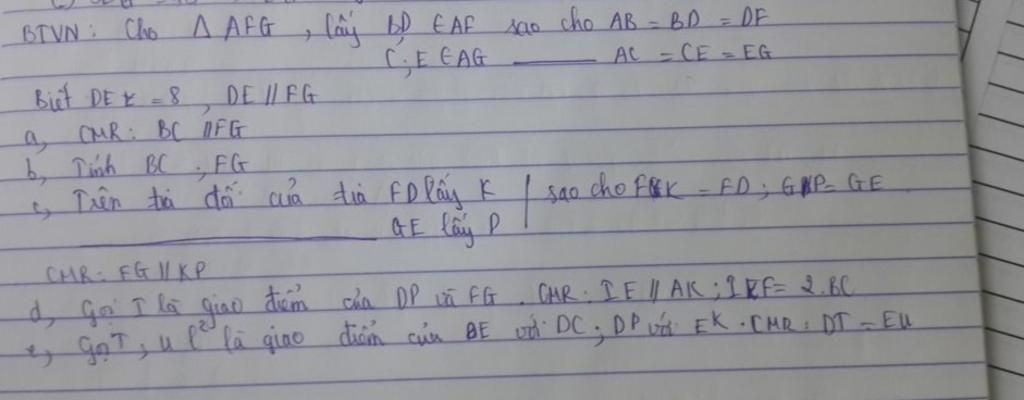 BTVN: Cho Δ AFG, lấy B,D ∈ AF sao cho AB = BD = DF
C, E ∈ AG ——— AC = CE = EG
Biết DE = 8, DE // FG
a, CMR: BC // FG
b, Tính BC ; FG
c, Trên tia đối của tia FD lấy K | sao cho FK = FD ; GP = GE
——— GE lấy P
CMR: FG // KP
d, Gọi I là giao điểm của DP và FG. CMR: IE // AK ; IF = 2.BC
e, Gọi T, U l² là giao điểm của BE với DC ; DP với EK. CMR: DT = EU